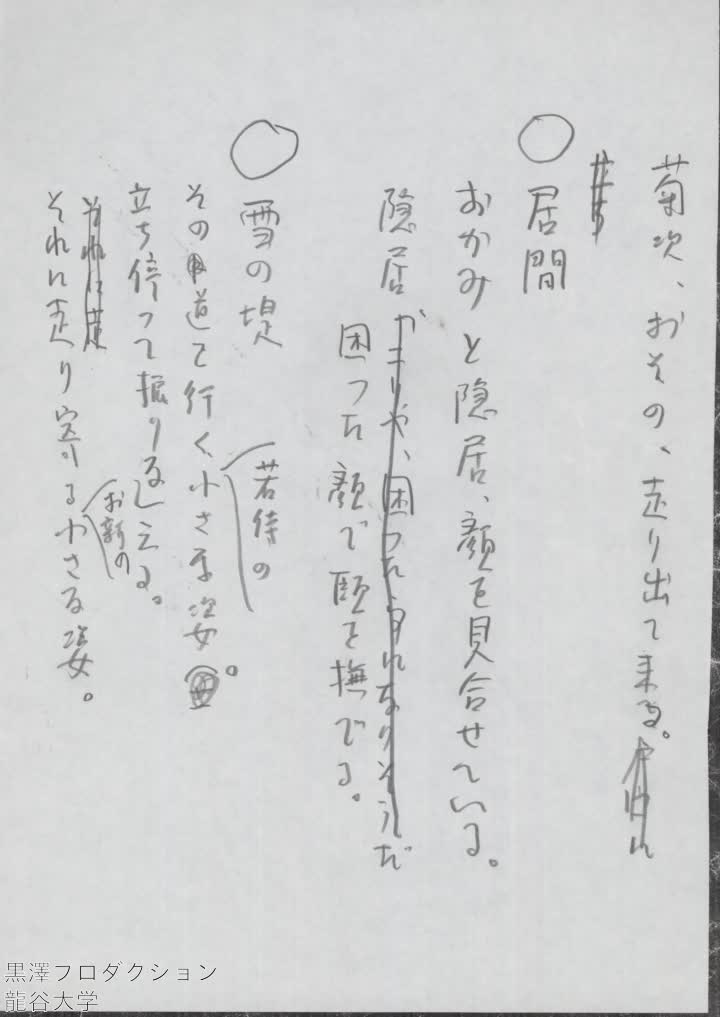 菊次、おその、走り出て来る。
○居間
おかみと隠居、顔を見合せている。
隠居
困った顔で頤を撫でる。
○雪の堤
若侍の
その道を行く小さな姿。
立ち停って振り返える。
お新の
それに走り寄る小さな姿。
黒澤プロダクション
龍谷大学